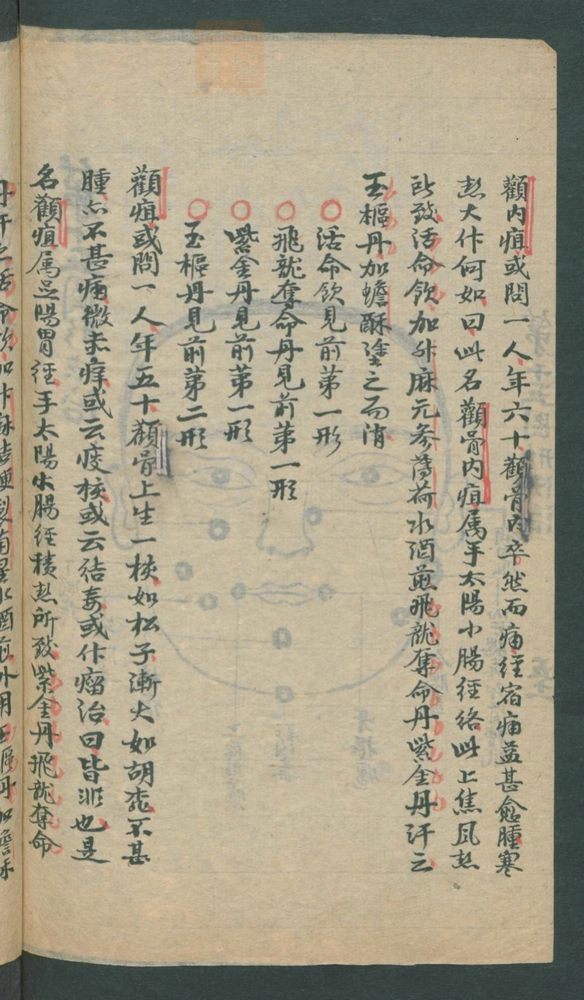 顴內疽或問一人年六十顴骨內卒然而痛經宿痛益甚愈腫寒
熱大作何如曰此名顴骨內疽属手太陽小腸經絡此上焦風熱
所致活命飲加升麻元參薄荷水酒煎飛龍奪命丹紫金丹汗之
玉樞丹加蟾酥塗之而消
○活命飲見前第一形
○飛龍奪命丹見前第一形
○紫金丹見前第一形
○玉樞丹見前第二形
顴疽或問一人年五十顴骨上生一核如松子漸大如胡桃不甚
腫亦不甚痛微赤痒或云痰核或云結毒或作瘤治曰皆非也是
名顴疽属足陽胃經手太陽小腸經積熱所致紫金丹飛龍奪命
丹汗之活命飲加升麻桔梗製南星水酒煎外用玉樞丹加蟾酥